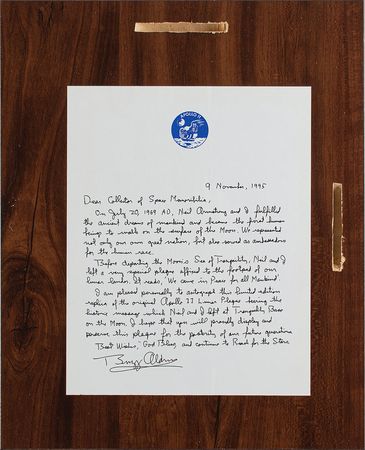 APOLLO 11
9 November, 1995
Dear Collector of Space Memorabilia,
On July 20, 1969 AD, Neil Armstrong and I fulfilled
the ancient dreams of mankind and became the first human
beings to walk on the surface of the Moon. We represented
not only our own great nation, but also served as ambassadors
for the human race.
Before departing the Moon's Sea of Tranquility, Neil and I
left a very special plaque affixed to the footpad of our
lunar lander. It reads, "We came in Peace for all Mankind".
I am pleased personally to autograph this limited edition
replica of the original Apollo 11 Lunar Plaque bearing the
historic message which Neil and I left at Tranquility Base
on the Moon. I hope that you will proudly display and
preserve this plaque for the posterity of our future generations.
Best Wishes, God Bless, and continue to Reach for the Stars.
Buzz Aldrin